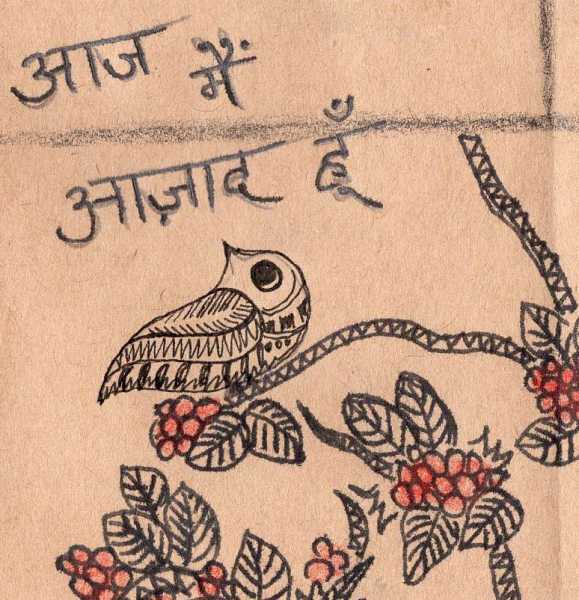 आज मैं
आज़ाद हूँ